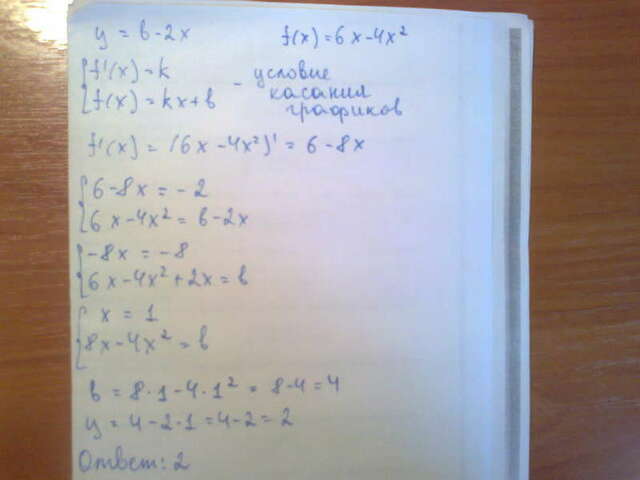 y = b - 2x f(x) = 6x - 4x²
{ f'(x) = k
{ f(x) = kx + b - условие касания графиков
f'(x) = (6x - 4x²)' = 6 - 8x
{ 6 - 8x = - 2
{ 6x - 4x² = b - 2x
{ -8x = -8
{ 6x - 4x² + 2x = b
{ x = 1
{ 8x - 4x² = b
b = 8·1 - 4·1² = 8 - 4 = 4
y = 4 - 2·1 = 4 - 2 = 2
Ответ: 2